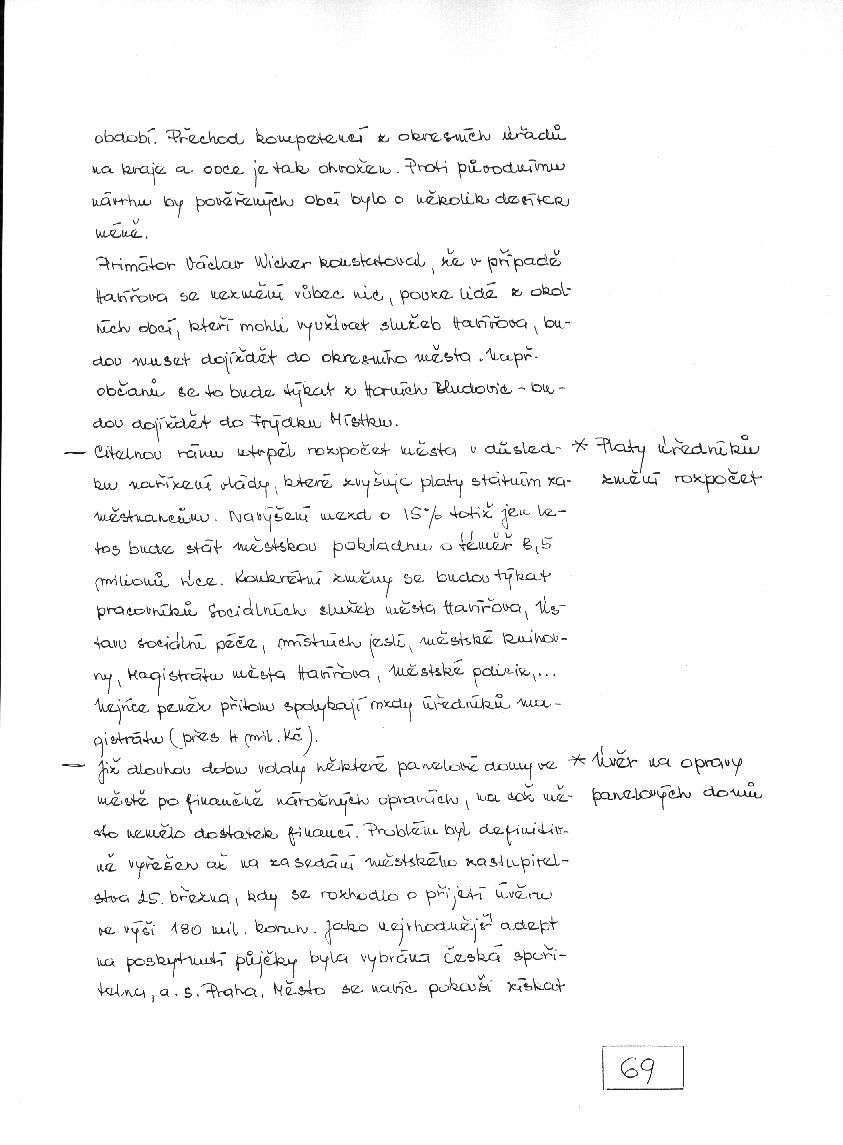 období. Přechod kompetencí z okresních úřadů
na kraje a obce je tak ohrožen. Proti původnímu
návrhu by pověřených obcí bylo o několik desítek
méně.
Primátor Václav Wicher konstatoval, že v případě
Havířova se nezmění vůbec nic, pouze lidé z okol-
ních obcí, kteří mohli využívat služeb Havířova, bu-
dou muset dojíždět do okresního města. Např.
občanů se to bude týkat z Horních Bludovic - bu-
dou dojíždět do Frýdku Místku.
— Citelnou ránu utrpěl rozpočet města v důsled-
ku nařízení vlády, které zvyšuje platy státním za-
městnancům. Navýšení mezd o 15% totiž jen le-
tos bude stát městskou pokladnu o téměř 8,5
milionů více. Konkrétní změny se budou týkat
pracovníků Sociálních služeb města Havířova, Ús-
tavu sociální péče, místních jeslí, městské knihov-
ny, Magistrátu města Havířova, Městské policie,...
Nejvíce peněz přitom spolykají mzdy úředníků ma-
gistrátu (přes 4 mil. Kč).
* Platy úředníků
změní rozpočet
— Již dlouhou dobu volaly některé panelové domy ve
městě po finančně náročných opravách, na což mě-
sto nemělo dostatek financí. Problém byl definitiv-
ně vyřešen až na zasedání městského zastupitel-
stva 25. března, kdy se rozhodlo o přijetí úvěru
ve výši 180 mil. korun. Jako nejvhodnější adept
na poskytnutí půjčky byla vybrána Česká spoři-
telna, a. s. Praha. Město se navíc pokouší získat
* Úvěr na opravy
panelových domů
69